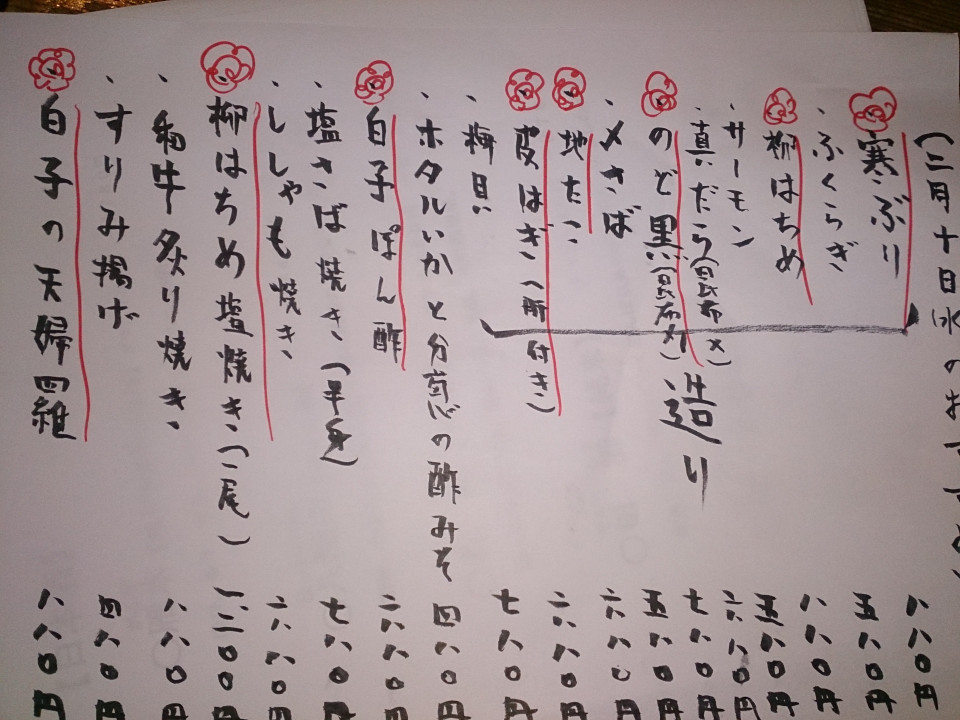 (三月十日(水)のおすすめ
寒ぶり 八八〇円
ふくらぎ 五八〇円
柳はちめ 八八〇円
サーモン 五八〇円
真だら(昆布〆) 六八〇円
のど黒(昆布〆) 七八〇円
造り
〆さば 五八〇円
地たこ 六八〇円
皮はぎ(肝付き) 六八〇円
梅貝 七八〇円
ホタルいかと分葱の酢みそ 四八〇円
白子ぽん酢 六八〇円
塩さば焼き(半身) 七八〇円
ししゃも焼き 六八〇円
柳はちめ塩焼き(二尾) 一二〇〇円
和牛炙り焼き 八八〇円
すりみ揚げ 四八〇円
白子の天婦羅 八八〇円